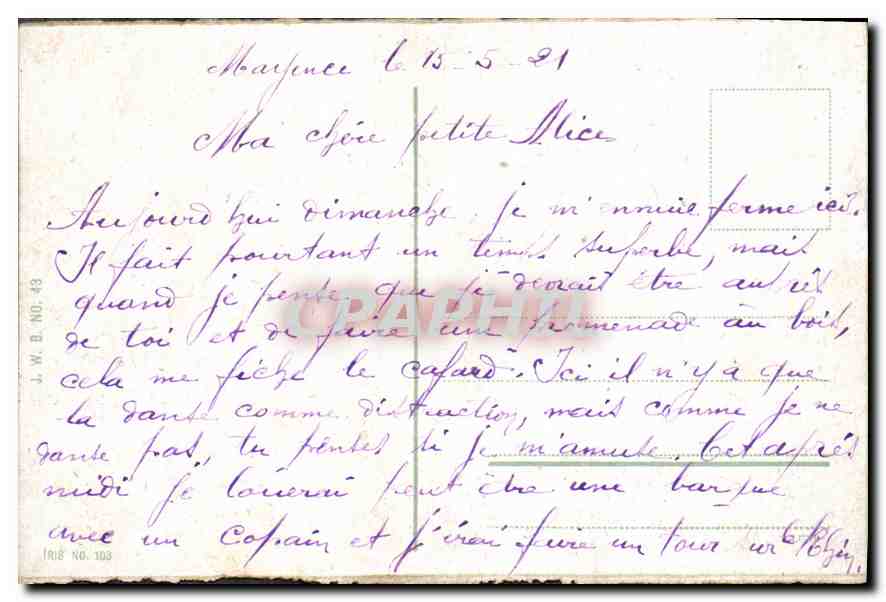 Mayence le 15-5-21
Ma chére petite Alice
Aujourd'hui dimanche, je m'ennuie ferme ici.
Il fait pourtant un temps superbe, mais
quand je pense que je devrais être auprès
de toi et de faire une promenade au bois,
cela me fiche le cafard. Ici il n'y à que
la danse comme distraction, mais comme je ne
danse pas, tu penses si je m'amuse. Cet après
midi je louerai peut être une barque
avec un copain et j'irai faire un tour sur le Rhin.
J. W. B. NO. 43
IRIS NO. 103
CPAPHIL